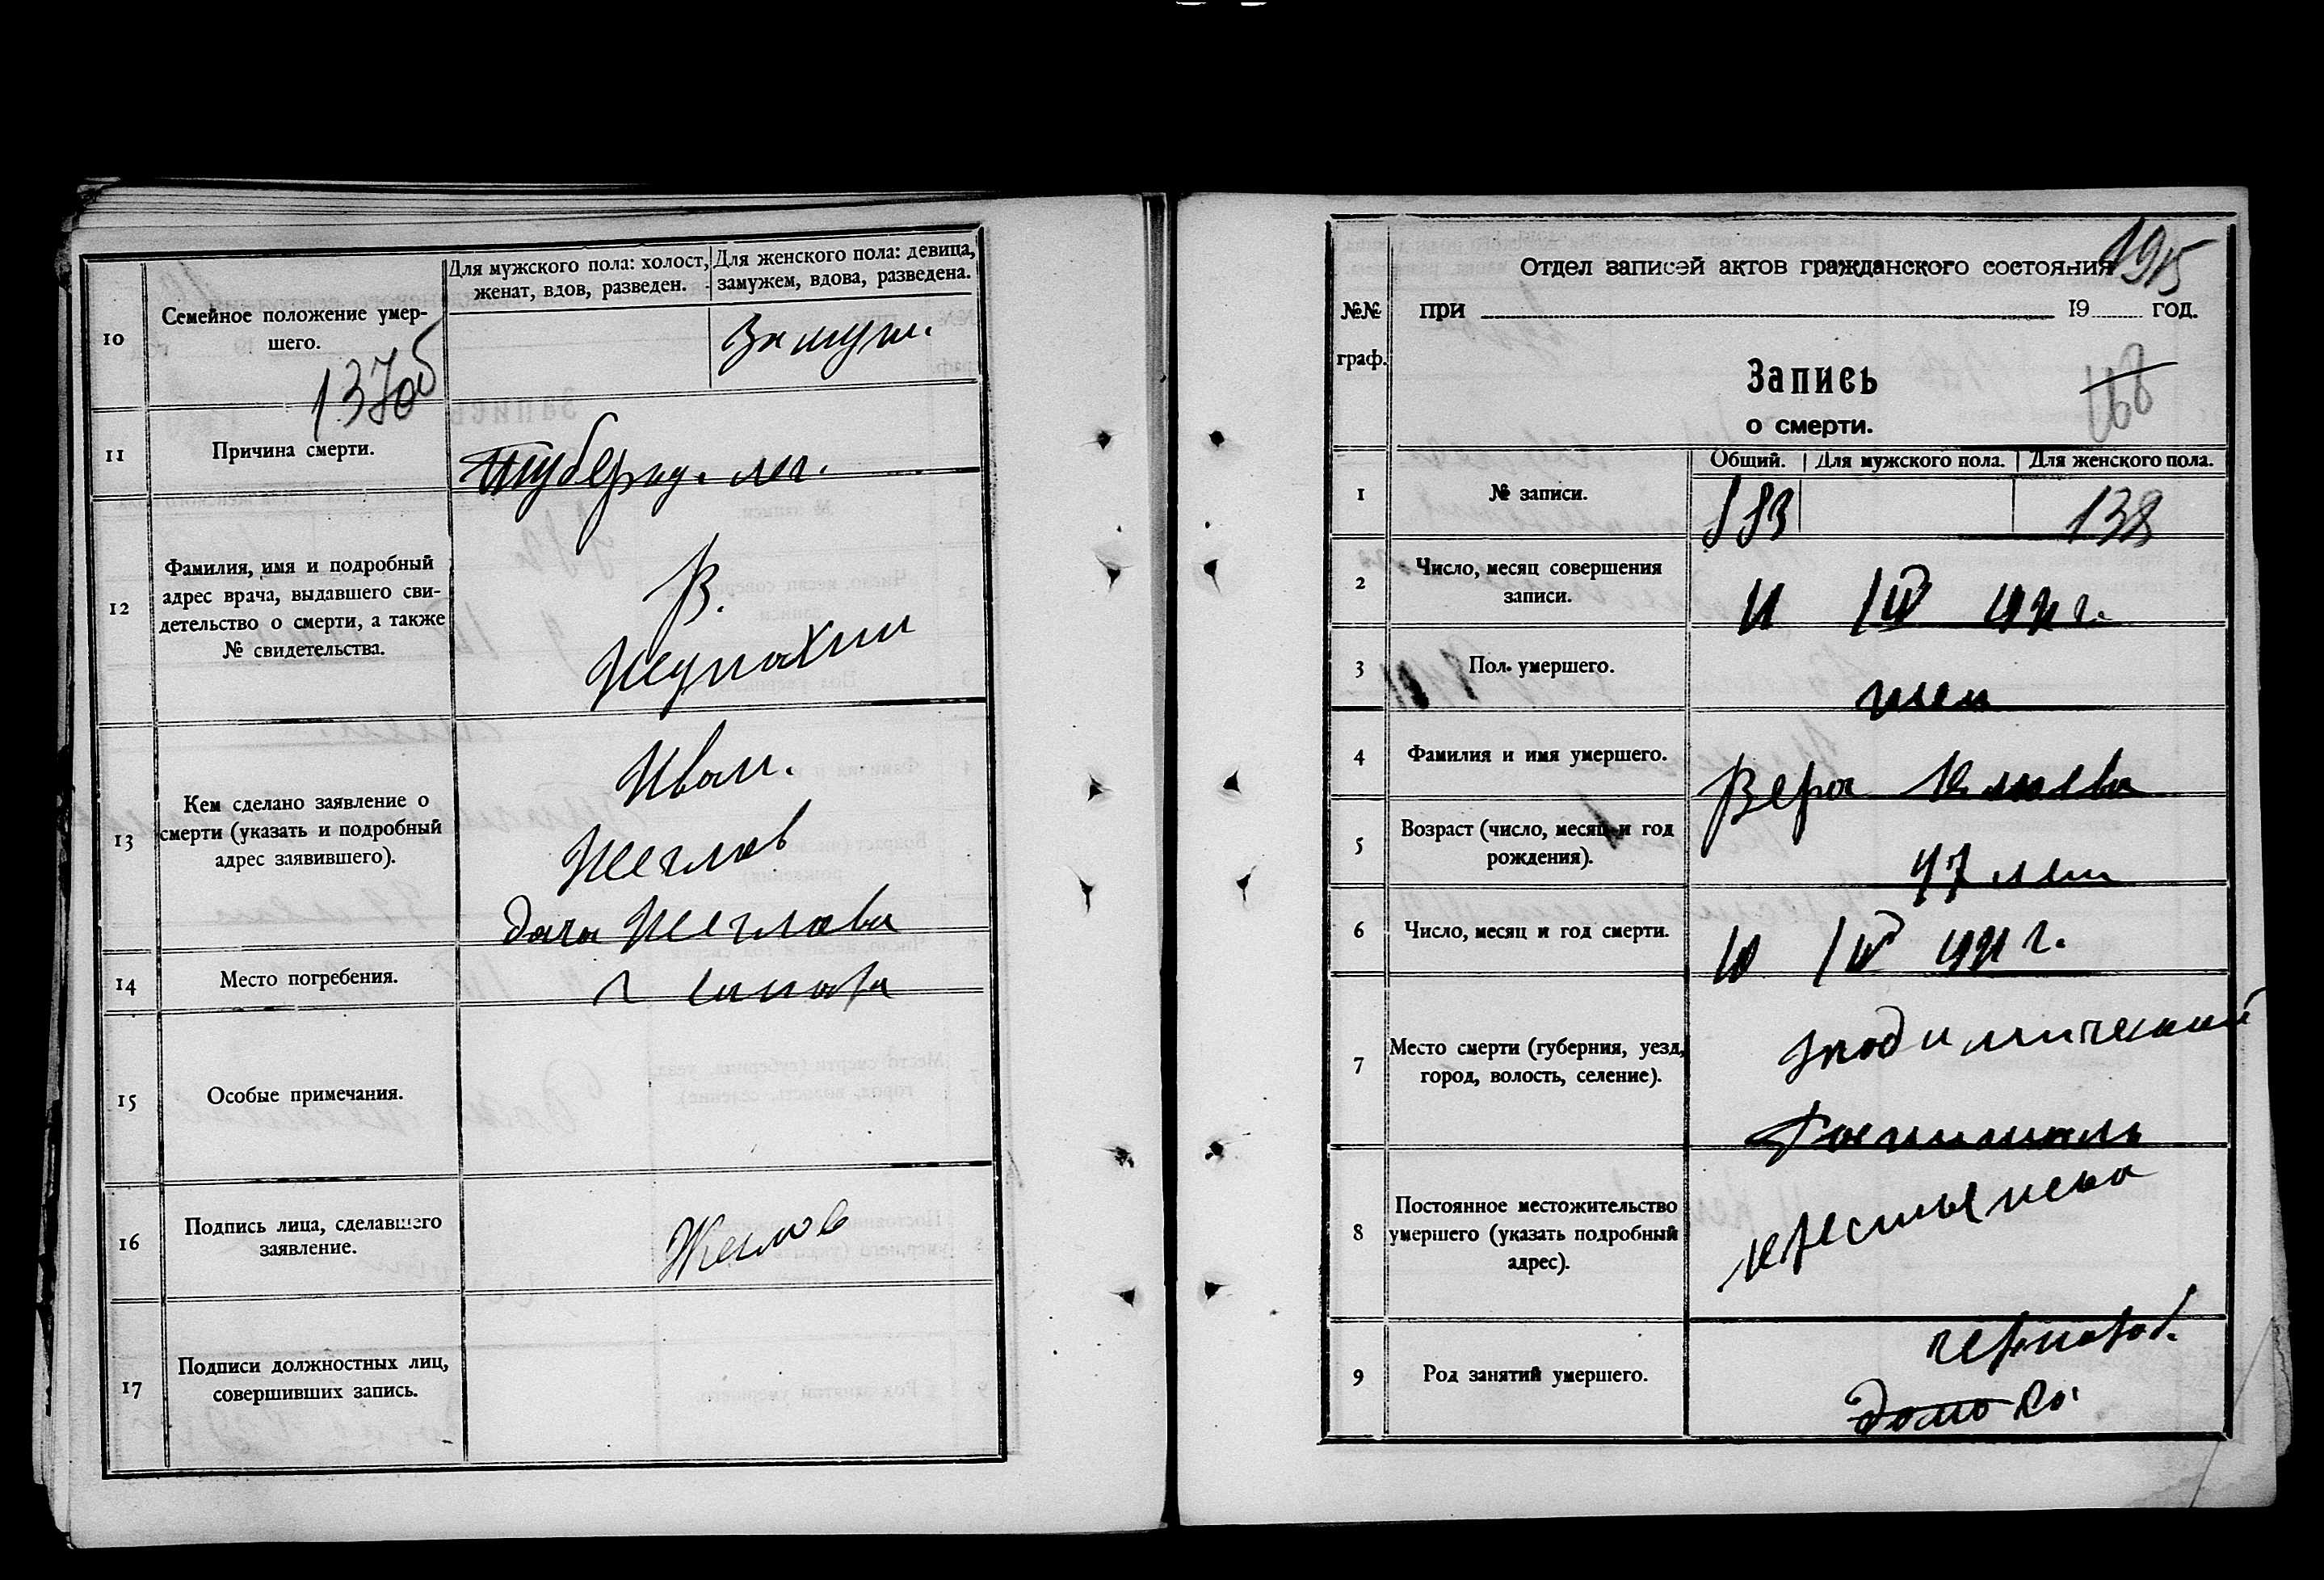 10
Семейное положение умер-
шего.
Для мужского пола: холост,
женат, вдов, разведен.
Для женского пола: девица,
замужем, вдова, разведена.
Замуж.
11
Причина смерти.
Туберкул. лег.
12
Фамилия, имя и подробный
адрес врача, выдавшего сви-
детельство о смерти, а также
№ свидетельства.
В.
13
Кем сделано заявление о
смерти (указать и подробный
адрес заявившего).
Иван.
Жеглов
дача Жеглова
14
Место погребения.
15
Особые примечания.
16
Подпись лица, сделавшего
заявление.
Жеглов
17
Подписи должностных лиц,
совершивших запись.
195
Отдел записей актов гражданского состояния
при 19 год.
№№
граф.
Запись
о смерти.
168
Общий. Для мужского пола. Для женского пола.
1
№ записи.
138
2
Число, месяц совершения
записи.
11 IV 1921 г.
3
Пол умершего.
жен
4
Фамилия и имя умершего.
Вера
5
Возраст (число, месяц и год
рождения).
47 лет
6
Число, месяц и год смерти.
10 IV 1921 г.
7
Место смерти (губерния, уезд,
город, волость, селение).
Госпиталь
8
Постоянное местожительство
умершего (указать подробный
адрес).
крестьянка
9
Род занятий умершего.
чернораб.